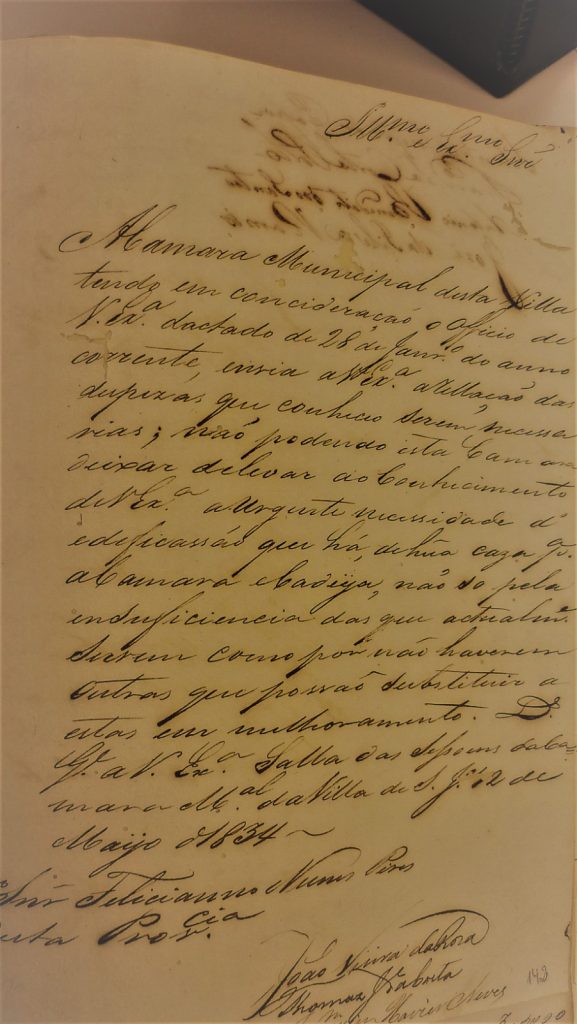 Illmo. e Exmo. Snr.
A Camara Municipal desta Villa
tendo em concideração o Officio de
V. Exa. dactado de 28 de Janro. do anno
corrente, envia a V. Exa. a rellação das
dispezas que conheceo serem necessa
rias; não podendo esta Camara
deixar de levar ao Conhecimento
de V. Exa. a urgente necessidade d'
edeficassão que há, de hũa caza pa.
a Camara e Cadeya, não so pela
insuficiencia das que actualme.
servem como por não haverem
outras que possão substituir a
estas em milhoramento. Ds.
Ge. a V. Exa. Salla das Sessoens da Ca=
mara Mal. da Villa de S. Je. 12 de
Maijo d'1834 ~
Snr. Felicianno Nunes Pires
desta Provcia.
João Vieira da Rosa
Thomaz
Xavier Neves
143